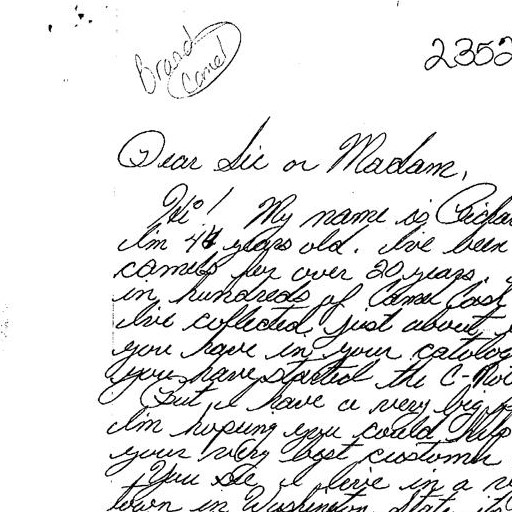 Brand
Camel
2352
Dear Sir or Madam,
Hi! My name is Richar
I'm 47 years old. I've been
camels for over 20 years.
in hundreds of Camel Cash
I've collected just about
you have in your catalog
you have started the C-Not
But, I have a very big
I'm hoping you could help
your very best customer
You see, I live in a
town in Washington State